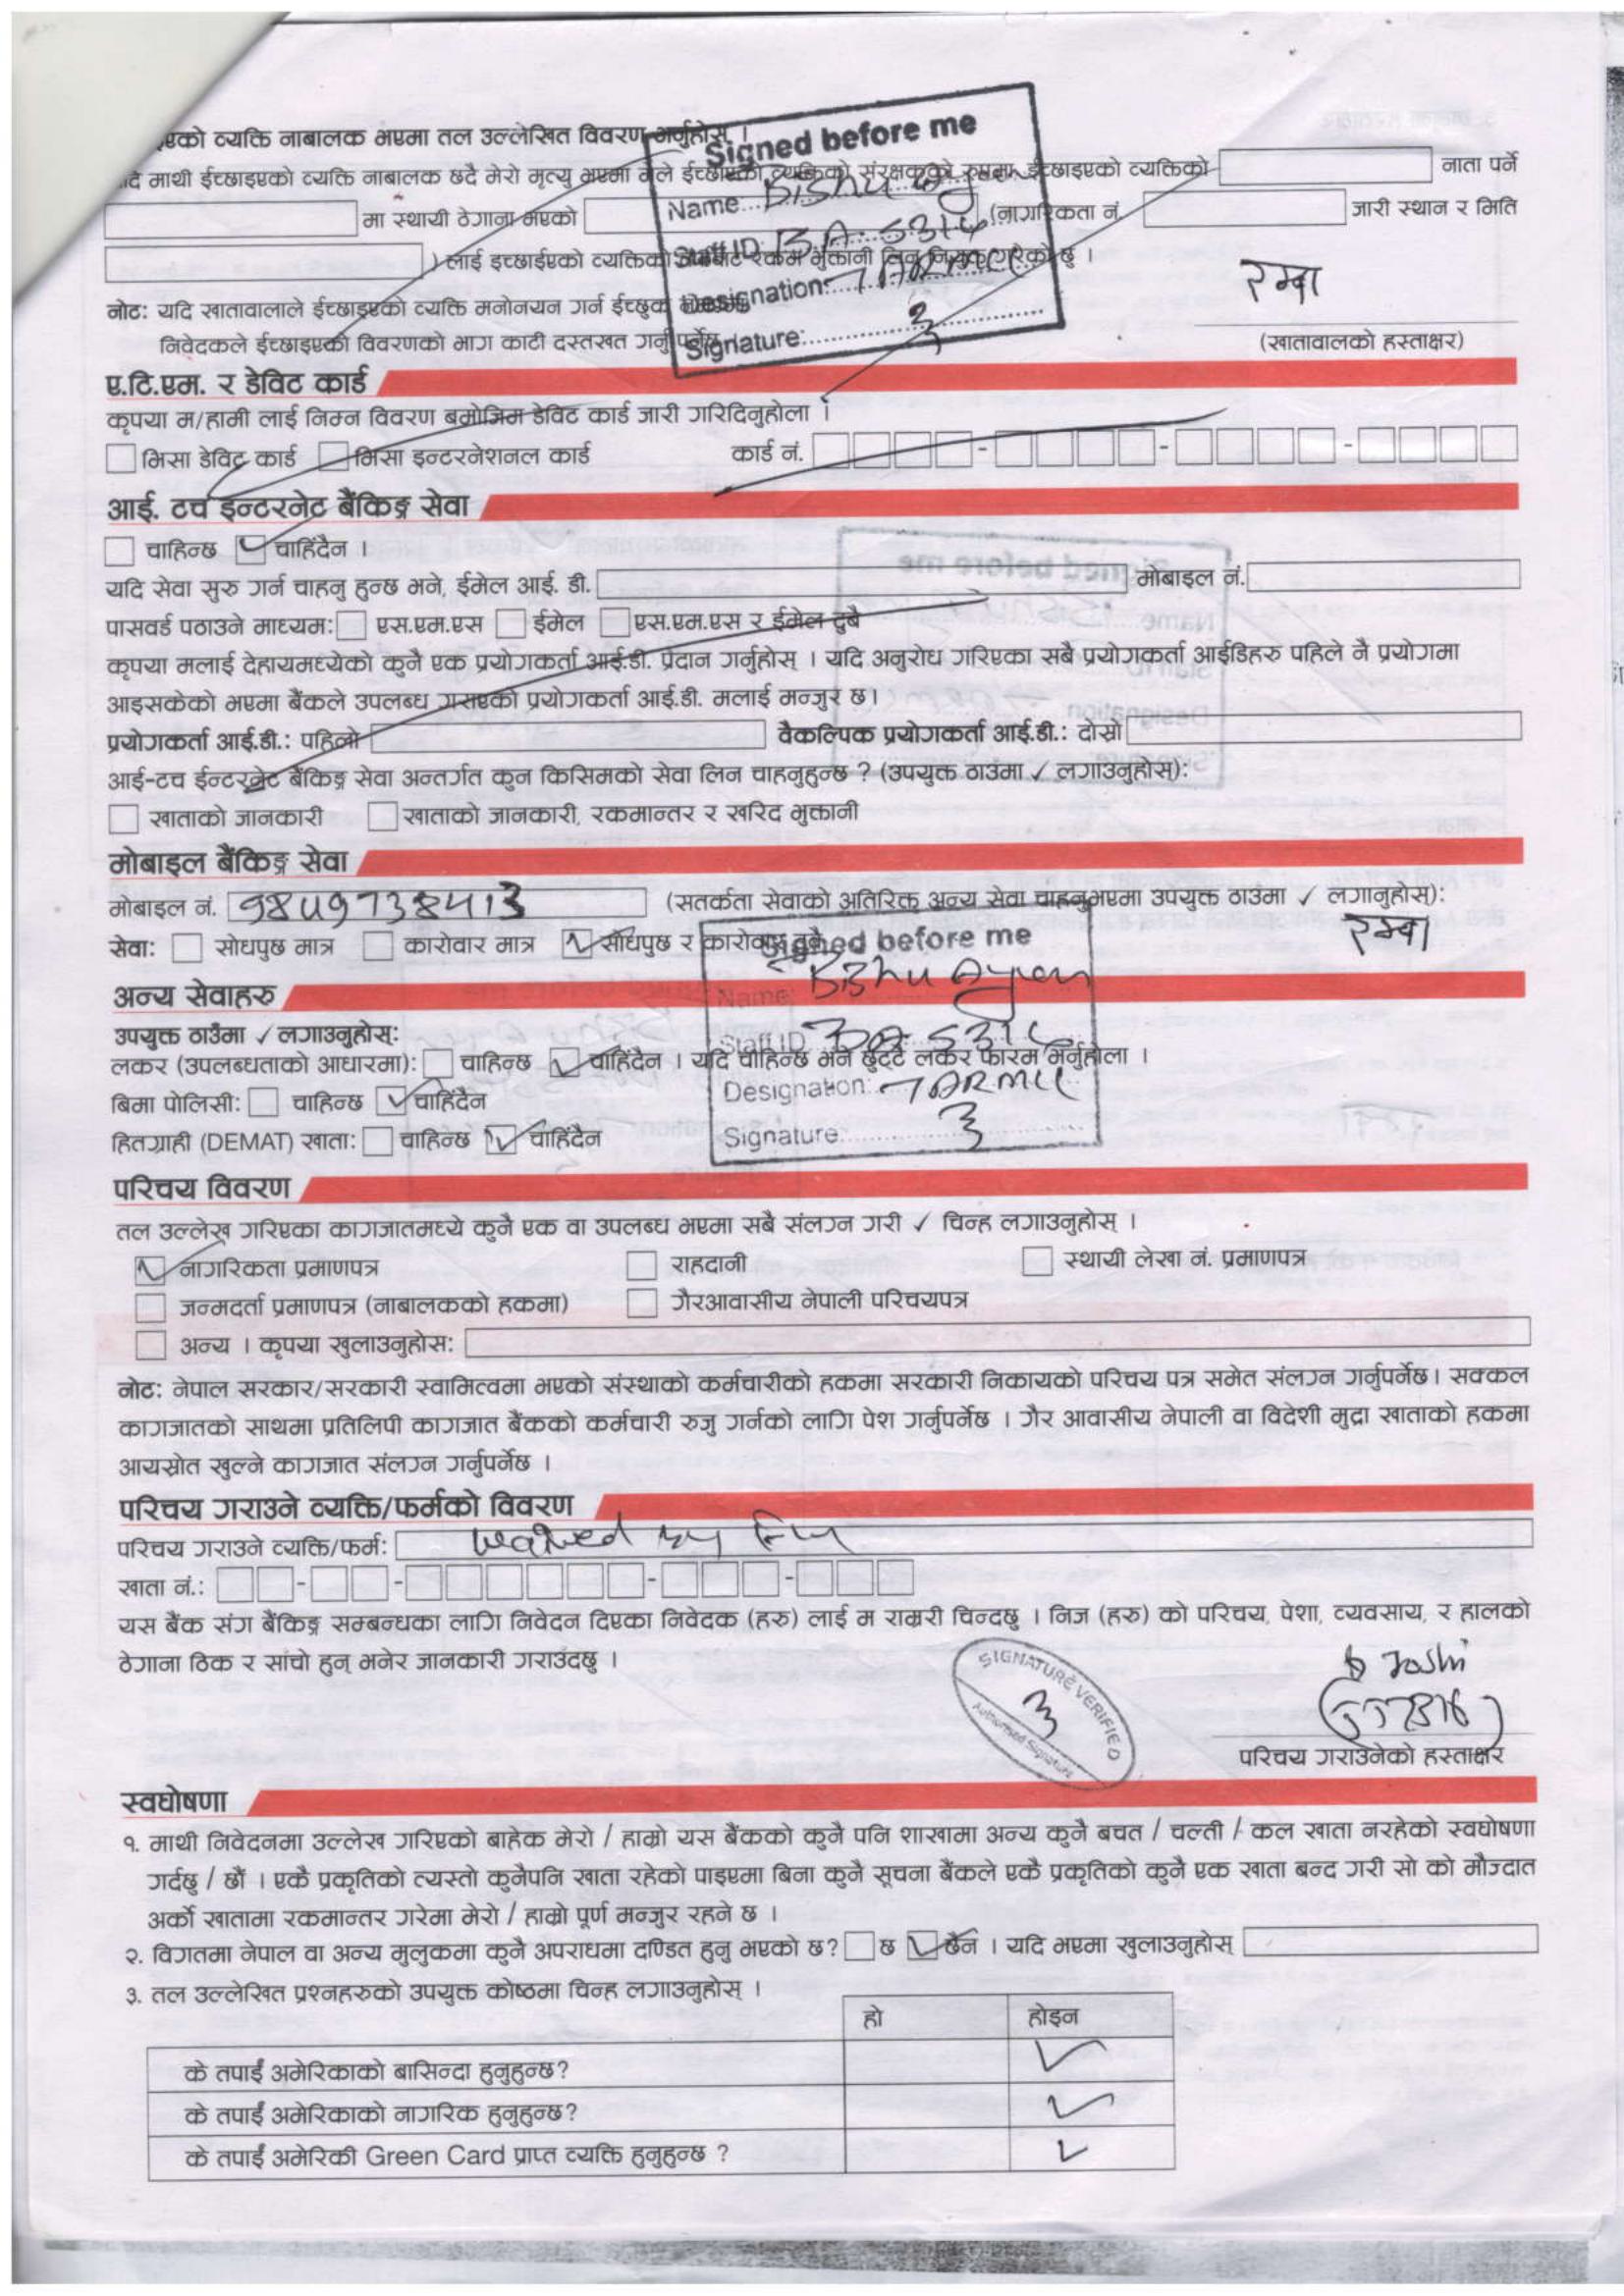 एको व्यक्ति नाबालक भएमा तल उल्लेखित विवरण भर्नुहोस् ।
माथी ईच्छाइएको व्यक्ति नाबालक छदै मेरो मृत्यु भएमा मैले ईच्छाएको व्यक्तिको संरक्षकको रुपमा ईच्छाइएको व्यक्तिको नाता पर्ने
मा स्थायी ठेगाना भएको (नागरिकता नं. जारी स्थान र मिति
) लाई इच्छाईएको व्यक्तिको रकम भुक्तानी लिन नियुक्त गरेको छु ।
Signed before me
Name
Staff ID BA-5314
Designation:
Signature:
रम्बा
नोट: यदि खातावालाले ईच्छाइएको व्यक्ति मनोनयन गर्न ईच्छुक
निवेदकले ईच्छाइएको विवरणको भाग काटी दस्तखत गर्नु पर्नेछ
(खातावालको हस्ताक्षर)
ए.टि.एम. र डेविट कार्ड
कृपया म/हामी लाई निम्न विवरण बमोजिम डेविट कार्ड जारी गरिदिनुहोला ।
भिसा डेविट कार्ड भिसा इन्टरनेशनल कार्ड कार्ड नं. - - -
आई. टच इन्टरनेट बैंकिङ्ग सेवा
चाहिन्छ ✓ चाहिंदैन ।
यदि सेवा सुरु गर्न चाहनु हुन्छ भने, ईमेल आई. डी. मोबाइल नं.
पासवर्ड पठाउने माध्यम: एस.एम.एस ईमेल एस.एम.एस र ईमेल दुबै
कृपया मलाई देहायमध्येको कुनै एक प्रयोगकर्ता आई.डी. प्रदान गर्नुहोस् । यदि अनुरोध गरिएका सबै प्रयोगकर्ता आईडिहरु पहिले नै प्रयोगमा
आइसकेको भएमा बैंकले उपलब्ध गराएको प्रयोगकर्ता आई.डी. मलाई मन्जुर छ।
प्रयोगकर्ता आई.डी.: पहिलो वैकल्पिक प्रयोगकर्ता आई.डी.: दोस्रो
आई-टच ईन्टरनेट बैंकिङ्ग सेवा अन्तर्गत कुन किसिमको सेवा लिन चाहनुहुन्छ ? (उपयुक्त ठाउंमा ✓ लगाउनुहोस्):
खाताको जानकारी खाताको जानकारी, रकमान्तर र खरिद भुक्तानी
मोबाइल बैंकिङ्ग सेवा
मोबाइल नं. 9849738413 (सतर्कता सेवाको अतिरिक्त अन्य सेवा चाहनुभएमा उपयुक्त ठाउंमा ✓ लगानुहोस्):
सेवा: सोधपुछ मात्र कारोवार मात्र ✓ सोधपुछ र कारोवार दुबै
रम्बा
Signed before me
Name:
Staff ID BA-5314
Designation:
Signature:
अन्य सेवाहरु
उपयुक्त ठाउँमा ✓ लगाउनुहोस्:
लकर (उपलब्धताको आधारमा): चाहिन्छ ✓ चाहिंदैन । यदि चाहिन्छ भने छुट्टै लकर फारम भर्नुहोला ।
बिमा पोलिसी: चाहिन्छ ✓ चाहिंदैन
हितग्राही (DEMAT) खाता: चाहिन्छ ✓ चाहिंदैन
परिचय विवरण
तल उल्लेख गरिएका कागजातमध्ये कुनै एक वा उपलब्ध भएमा सबै संलग्न गरी ✓ चिन्ह लगाउनुहोस् ।
✓ नागरिकता प्रमाणपत्र राहदानी स्थायी लेखा नं. प्रमाणपत्र
जन्मदर्ता प्रमाणपत्र (नाबालकको हकमा) गैरआवासीय नेपाली परिचयपत्र
अन्य । कृपया खुलाउनुहोस:
नोट: नेपाल सरकार/सरकारी स्वामित्वमा भएको संस्थाको कर्मचारीको हकमा सरकारी निकायको परिचय पत्र समेत संलग्न गर्नुपर्नेछ। सक्कल
कागजातको साथमा प्रतिलिपी कागजात बैंकको कर्मचारी रुजु गर्नको लागि पेश गर्नुपर्नेछ । गैर आवासीय नेपाली वा विदेशी मुद्रा खाताको हकमा
आयस्रोत खुल्ने कागजात संलग्न गर्नुपर्नेछ ।
परिचय गराउने व्यक्ति/फर्मको विवरण
परिचय गराउने व्यक्ति/फर्म: waived by
खाता नं.: - - - -
यस बैंक संग बैंकिङ्ग सम्बन्धका लागि निवेदन दिएका निवेदक (हरु) लाई म राम्ररी चिन्दछु । निज (हरु) को परिचय, पेशा, व्यवसाय, र हालको
ठेगाना ठिक र सांचो हुन् भनेर जानकारी गराउंदछु ।
SIGNATURE VERIFIED
Authorised Signature
Joshi
परिचय गराउनेको हस्ताक्षर
स्वघोषणा
१. माथी निवेदनमा उल्लेख गरिएको बाहेक मेरो / हाम्रो यस बैंकको कुनै पनि शाखामा अन्य कुनै बचत / चल्ती / कल खाता नरहेको स्वघोषणा
गर्दछु / छौं । एकै प्रकृतिको त्यस्तो कुनैपनि खाता रहेको पाइएमा बिना कुनै सूचना बैंकले एकै प्रकृतिको कुनै एक खाता बन्द गरी सो को मौज्दात
अर्को खातामा रकमान्तर गरेमा मेरो / हाम्रो पूर्ण मन्जुर रहने छ ।
२. विगतमा नेपाल वा अन्य मुलुकमा कुनै अपराधमा दण्डित हुनु भएको छ? छ ✓ छैन । यदि भएमा खुलाउनुहोस्
३. तल उल्लेखित प्रश्नहरुको उपयुक्त कोष्ठमा चिन्ह लगाउनुहोस् ।
हो होइन
के तपाईं अमेरिकाको बासिन्दा हुनुहुन्छ? ✓
के तपाईं अमेरिकाको नागरिक हुनुहुन्छ? ✓
के तपाईं अमेरिकी Green Card प्राप्त व्यक्ति हुनुहुन्छ ? ✓